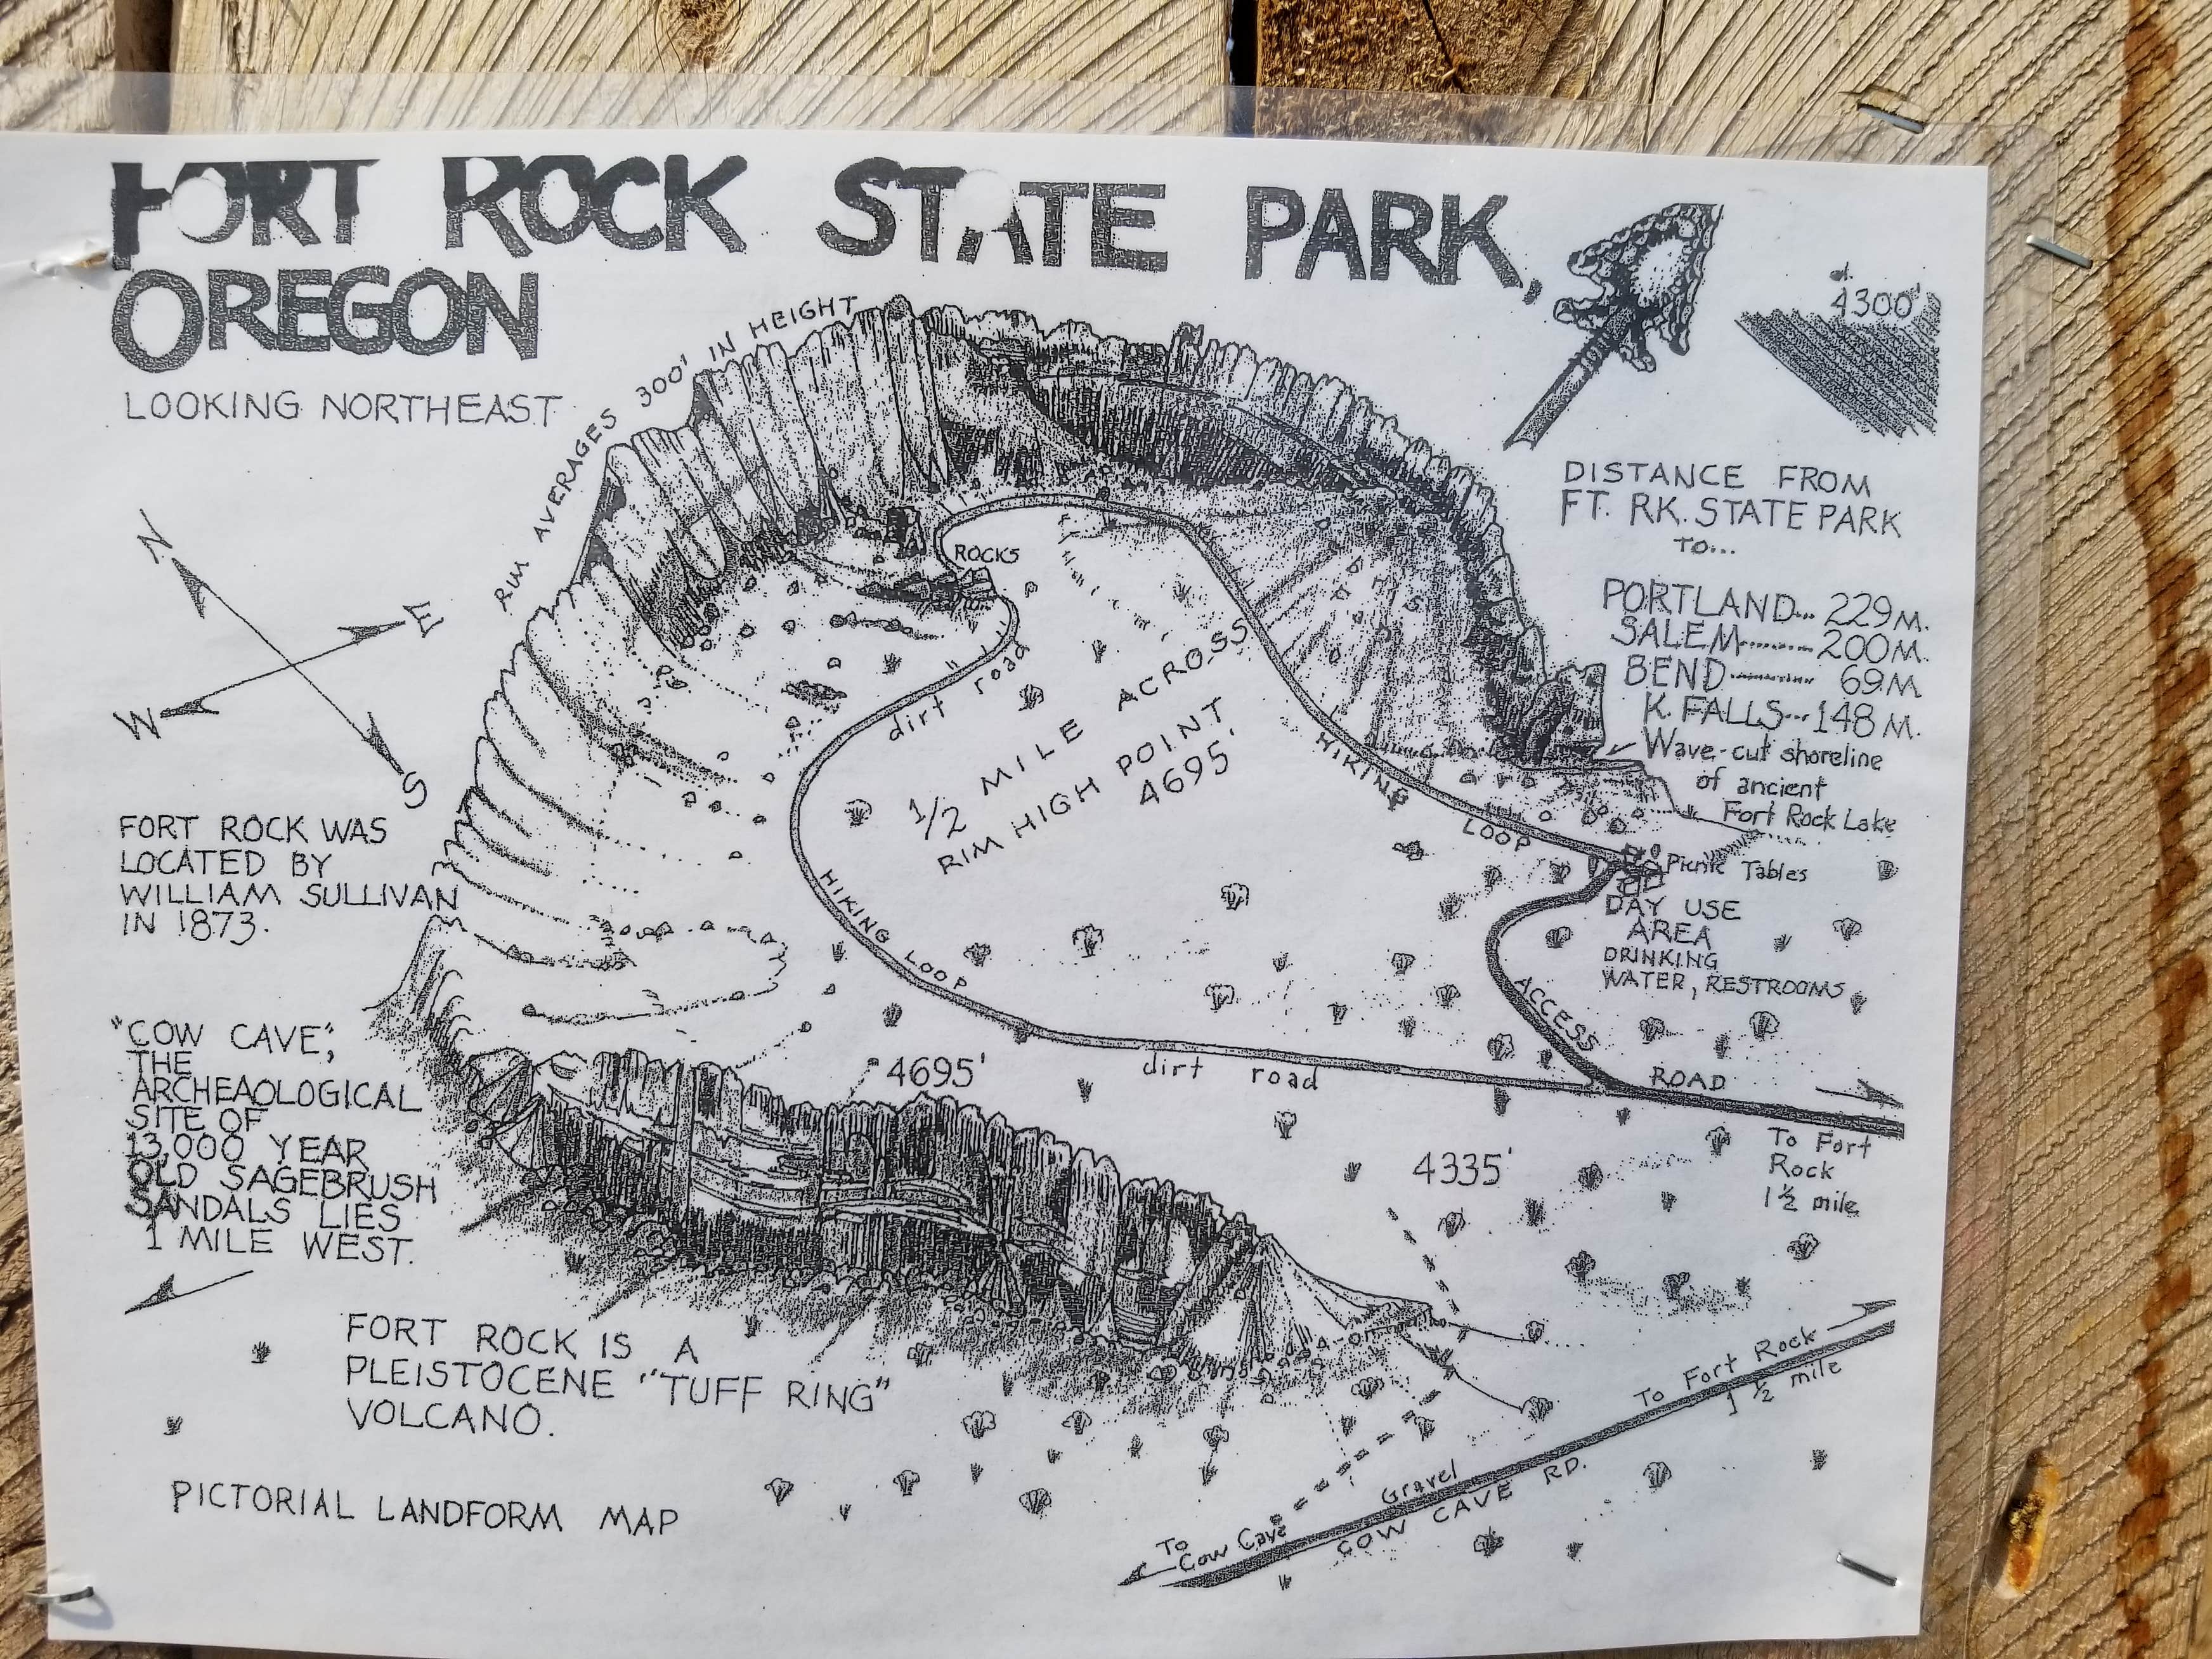 FORT ROCK STATE PARK,
OREGON
LOOKING NORTHEAST
RIM AVERAGES 300' IN HEIGHT
4300'
DISTANCE FROM
FT. RK. STATE PARK
TO...
PORTLAND... 229M.
SALEM......... 200M.
BEND............ 69M
K. FALLS...148M.
Wave-cut shoreline
of ancient
Fort Rock Lake
N
E
W
S
ROCKS
dirt road
1/2 MILE ACROSS
RIM HIGH POINT
4695'
HIKING
LOOP
Picnic Tables
DAY USE
AREA
DRINKING
WATER, RESTROOMS
FORT ROCK WAS
LOCATED BY
WILLIAM SULLIVAN
IN 1873.
HIKING LOOP
ACCESS
ROAD
"COW CAVE",
THE
ARCHEAOLOGICAL
SITE OF
13,000 YEAR
OLD SAGEBRUSH
SANDALS LIES
1 MILE WEST.
4695'
dirt road
To Fort
Rock
1 1/2 mile
4335'
FORT ROCK IS A
PLEISTOCENE "TUFF RING"
VOLCANO.
To Fort Rock
1 1/2 mile
PICTORIAL LANDFORM MAP
To
Cow Cave
Gravel
COW CAVE RD.